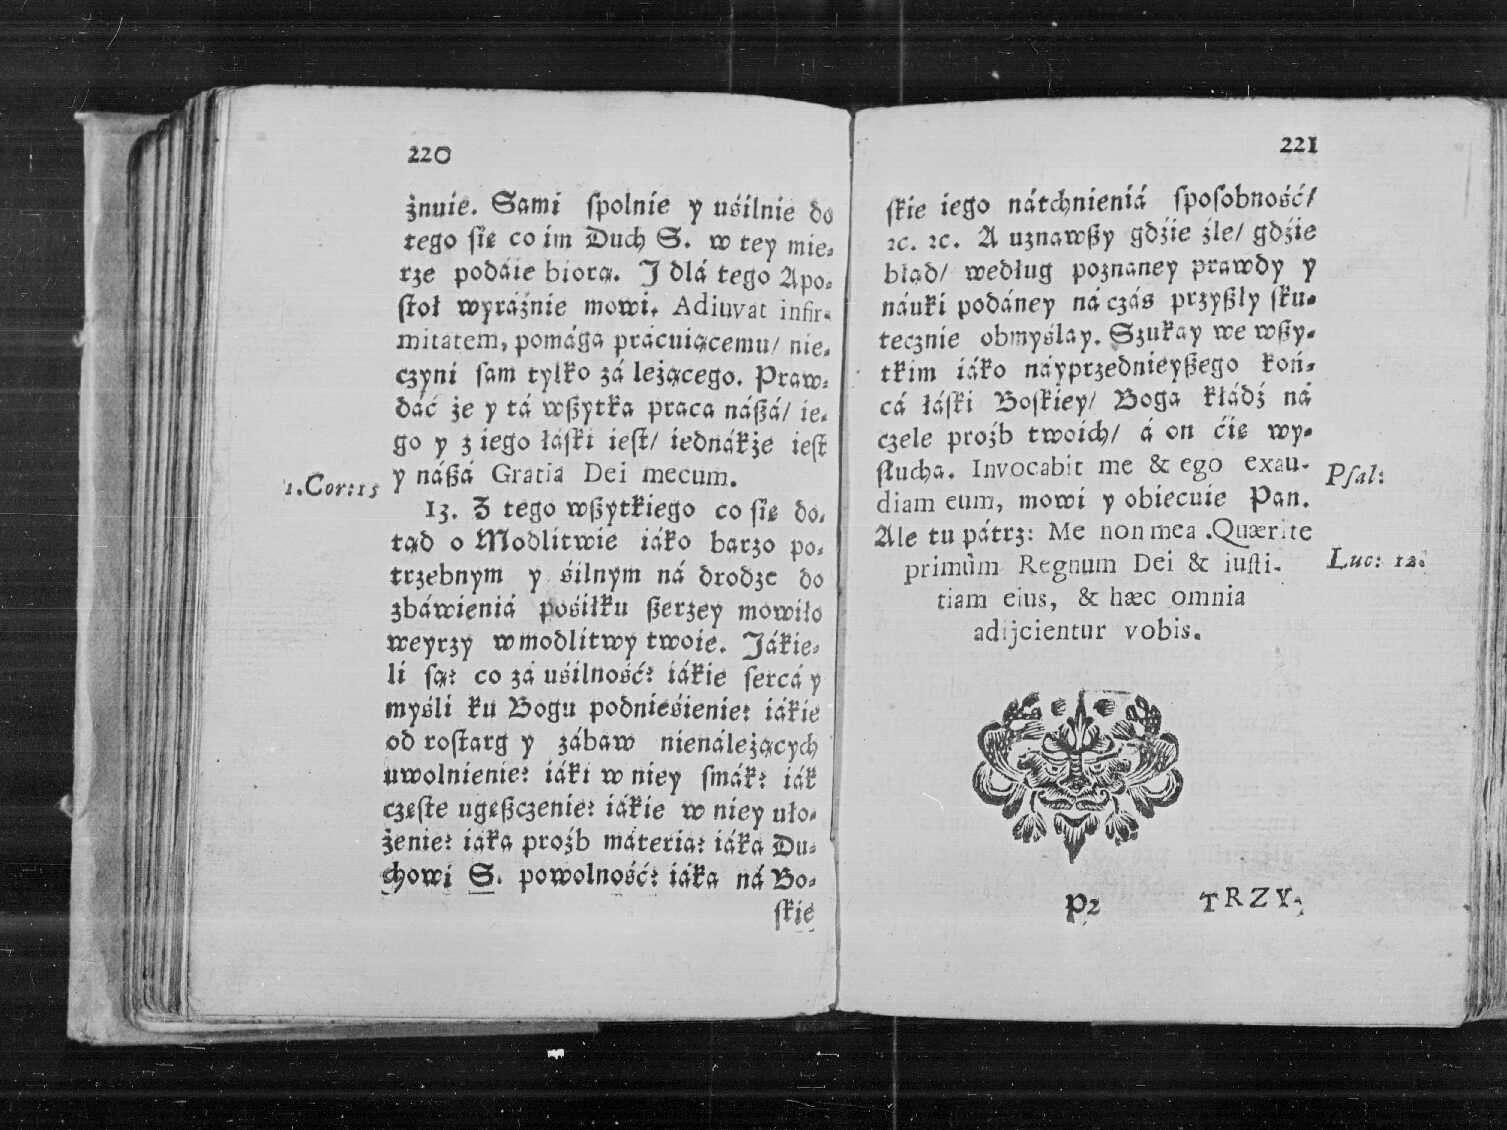 220
żnuie. Sami ſpolnie y uśilnie do
tego ſię co im Duch S. w tey mie-
rze podáie biorą. J dlá tego Apo-
ſtoł wyráźnie mowi. Adiuvat infir-
mitatem, pomága prácuiącemu/ nie-
czyni ſam tylko zá leżącego. Praw-
dáć że y tá wßytka praca náßá/ ie-
go y z iego łáſki ieſt/ iednákże ieſt
1.Cor:15
y náßá Gratia Dei mecum.
13. Z tego wßytkiego co ſię do-
tąd o Modlitwie iáko barzo po-
trzebnym y śilnym ná drodze do
zbáwieniá pośiłku ßerzey mowiło
weyrzy w modlitwy twoie. Jákie-
li ſą? co zá uśilność? iákie ſercá y
myśli ku Bogu podnieśienie? iákie
od roſtarg y zábaw nienáleżących
uwolnienie? iáki w niey ſmák? iák
częſte ugęßczenie? iákie w niey uło-
żenie? iáka proźb máteria? iáka Du-
chowi S. powolność? iáka ná Bo-
ſkie
221
ſkie iego nátchnieniá ſpoſobność/
ꝛc. ꝛc. A uznawßy gdźie źle/ gdźie
błąd/ według poznaney prawdy y
náuki podáney ná czás przyßły ſku-
tecznie obmyślay. Szukay we wßy-
tkim iáko náyprzednieyßego koń-
cá łáſki Boſkiey/ Boga kłádź ná
czele proźb twoich/ á on ćię wy-
ſłucha. Invocabit me & ego exau-
Pſal:
diam eum, mowi y obiecuie Pan.
Ale tu pátrz: Me non mea .Quærite
primùm Regnum Dei & iuſti-
Luc: 12.
tiam eius, & hæc omnia
adijcientur vobis.
P2
TRZY-